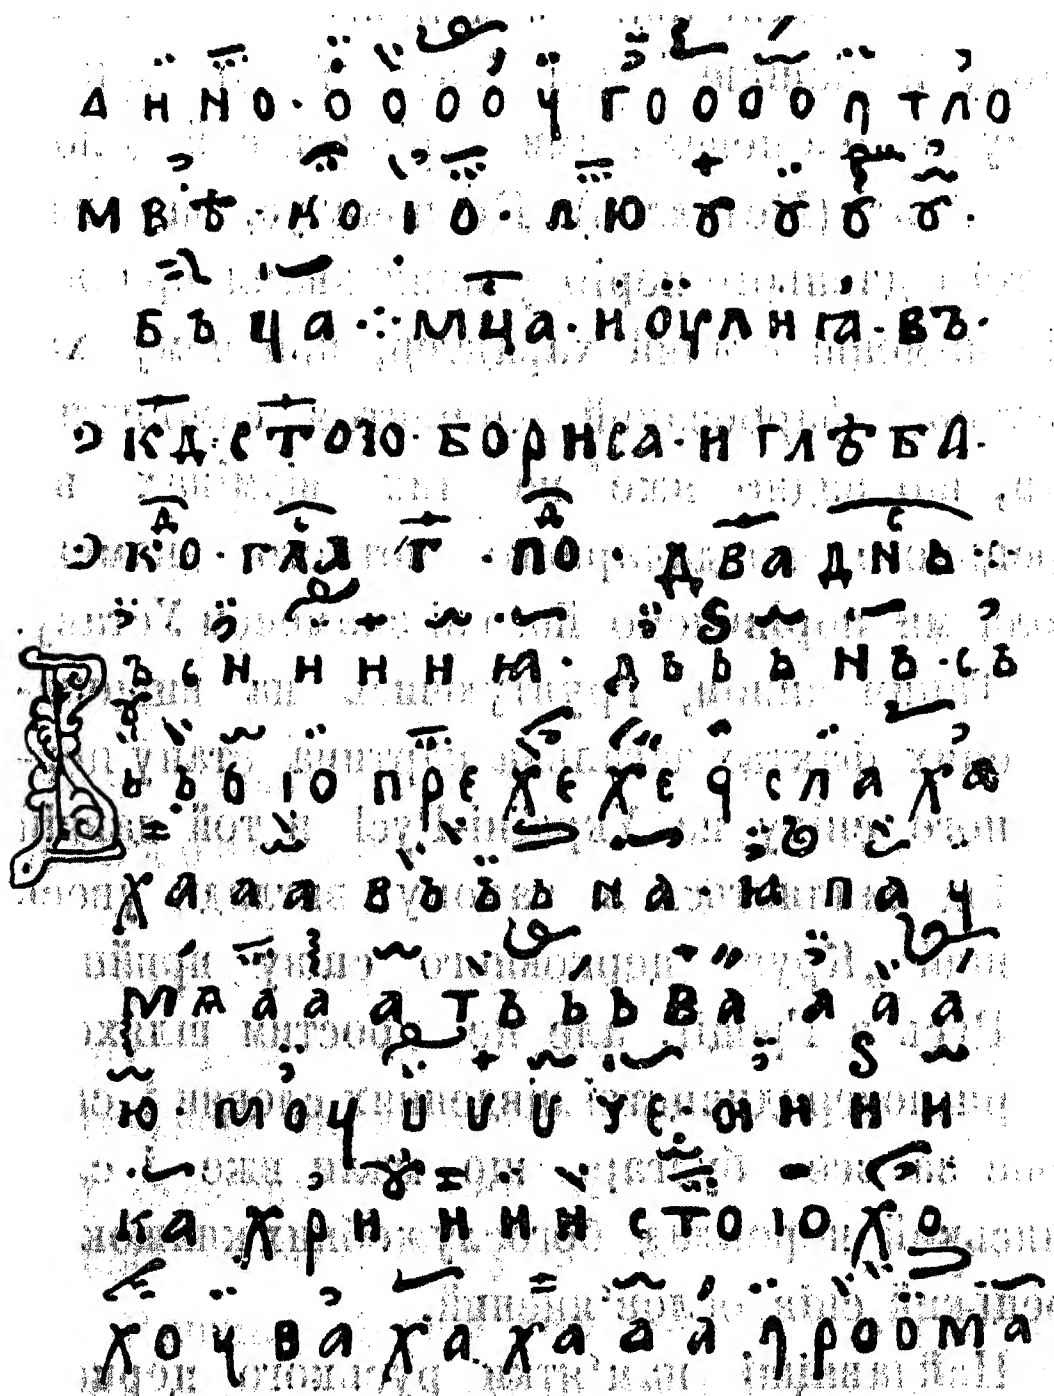 д н н о · о о о о ч г о о о о ꙡ т л о
м в ѣ · к о ꙇ о · л ю ꙋ ꙋ ꙋ ꙋ ·
б ъ ц а ·:· м ц а · и оу л и ꙗ · в ъ ·
к д · с т о ю · б о р и с а · и г л ѣ б а ·
к о · г л а · г · п о · д в а д н ь :
ъ с и и и и и ꙗ · д ь ь ь н ь · с ъ
ь ь ъ ꙇ о п р є х є х є ч с л а х а
х а а а в ъ ъ ь н а · ю п а ч
м ѧ а а а т ь ь ь в а а а а
ю · м о ч и и и ч є · ж и и и
к а х р и и и и с т о ю х о
х о ч в а х а х а а а · ꙡ · р о о м а